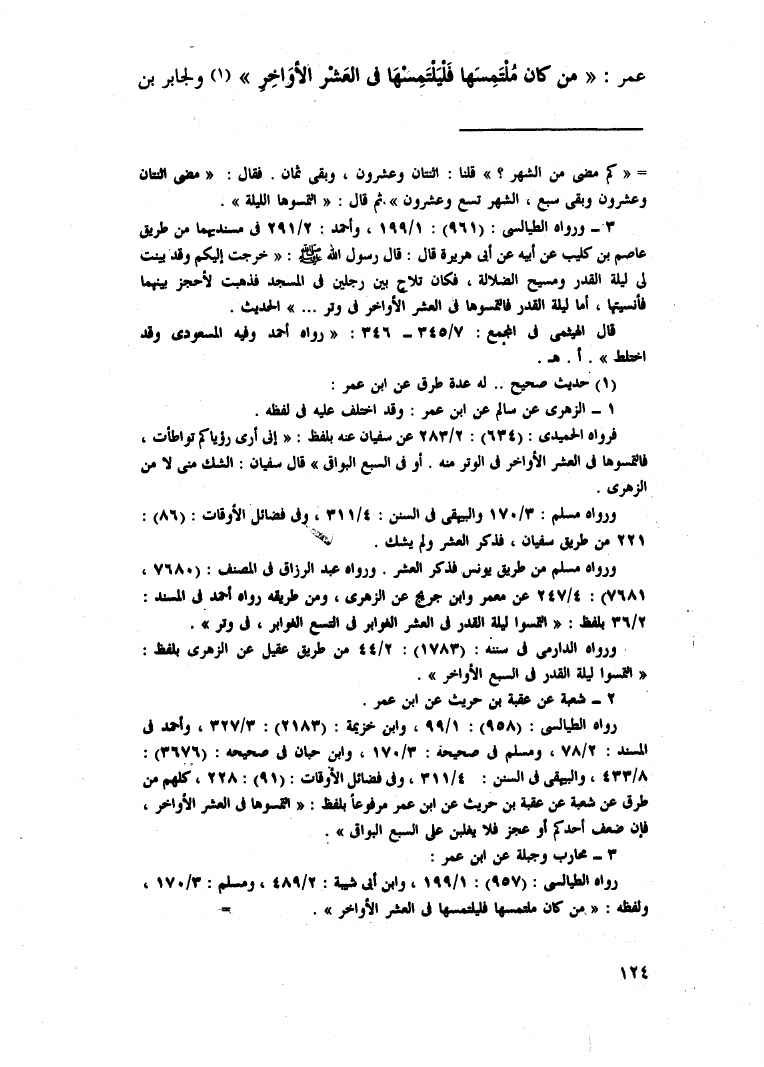 عمر : « من كان مُلْتَمِسَها فَلْيَلْتَمِسْهَا فى العَشْر الأوَاخِرِ » (١) ولجابر بن
= « كم مضى من الشهر ؟ » قلنا : اثنتان وعشرون ، وبقى ثمان . فقال : « مضى اثنتان
وعشرون وبقى سبع ، الشهر تسع وعشرون » . ثم قال : « التمسوها الليلة » .
٣ ـ ورواه الطيالسى : (٩٦١) : ١٩٩/١ ، وأحمد : ٢٩١/٢ فى مسنديهما من طريق
عاصم بن كليب عن أبيه عن أبى هريرة قال : قال رسول الله ﷺ : « خرجت إليكم وقد بينت
لى ليلة القدر ومسيح الضلالة ، فكان تلاح بين رجلين فى المسجد فذهبت لأحجز بينهما
فأنسيتها ، أما ليلة القدر فالتمسوها فى العشر الأواخر فى وتر ... » الحديث .
قال الهيثمى فى المجمع : ٣٤٥/٧ ـ ٣٤٦ : « رواه أحمد وفيه المسعودى وقد
اختلط » . أ . هـ .
(١) حديث صحيح .. له عدة طرق عن ابن عمر :
١ ـ الزهرى عن سالم عن ابن عمر : وقد اختلف عليه فى لفظه .
فرواه الحميدى : (٦٣٤) : ٢٨٣/٢ عن سفيان عنه بلفظ : « إنى أرى رؤياكم تواطأت ،
فالتمسوها فى العشر الأواخر فى الوتر منه . أو فى السبع البواق » قال سفيان : الشك منى لا من
الزهرى .
ورواه مسلم : ١٧٠/٣ والبيهقى فى السنن : ٣١١/٤ ، وفى فضائل الأوقات : (٨٦) :
٢٢١ من طريق سفيان ، فذكر العشر ولم يشك .
ورواه مسلم من طريق يونس فذكر العشر . ورواه عبد الرزاق فى المصنف : (٧٦٨٠ ،
٧٦٨١) : ٢٤٧/٤ عن معمر وابن جريج عن الزهرى ، ومن طريقه رواه أحمد فى المسند :
٣٦/٢ بلفظ : « التمسوا ليلة القدر فى العشر الغوابر فى التسع الغوابر ، فى وتر » .
ورواه الدارمى فى سننه : (١٧٨٣) : ٤٤/٢ من طريق عقيل عن الزهرى بلفظ :
« التمسوا ليلة القدر فى السبع الأواخر » .
٢ ـ شعبة عن عقبة بن حريث عن ابن عمر .
رواه الطيالسى : (٩٥٨) : ٩٩/١ ، وابن خزيمة : (٢١٨٣) : ٣٢٧/٣ ، وأحمد فى
المسند : ٧٨/٢ ، ومسلم فى صحيحة : ١٧٠/٣ ، وابن حبان فى صحيحه : (٣٦٧٦) :
٤٣٣/٨ ، والبيهقى فى السنن : ٣١١/٤ ، وفى فضائل الأوقات : (٩١) : ٢٢٨ ، كلهم من
طرق عن شعبة عن عقبة بن حريث عن ابن عمر مرفوعاً بلفظ : « التمسوها فى العشر الأواخر ،
فإن ضعف أحدكم أو عجز فلا يغلبن على السبع البواق » .
٣ ـ محارب وجبلة عن ابن عمر :
رواه الطيالسى : (٩٥٧) : ١٩٩/١ ، وابن أبى شيبة : ٤٨٩/٢ ، ومسلم : ١٧٠/٣ ،
ولفظه : « من كان ملتمسها فليلتمسها فى العشر الأواخر » . =
١٢٤